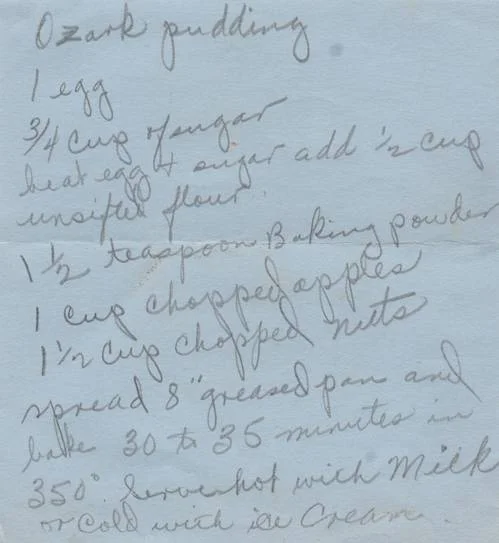 Ozark pudding
1 egg
3/4 cup of sugar
beat egg + sugar add 1/2 cup
unsifted flour.
1 1/2 teaspoon Baking powder
1 cup chopped apples
1 1/2 cup chopped nuts
spread 8" greased pan and
bake 30 to 35 minutes in
350°. Serve hot with Milk
or cold with ice Cream.